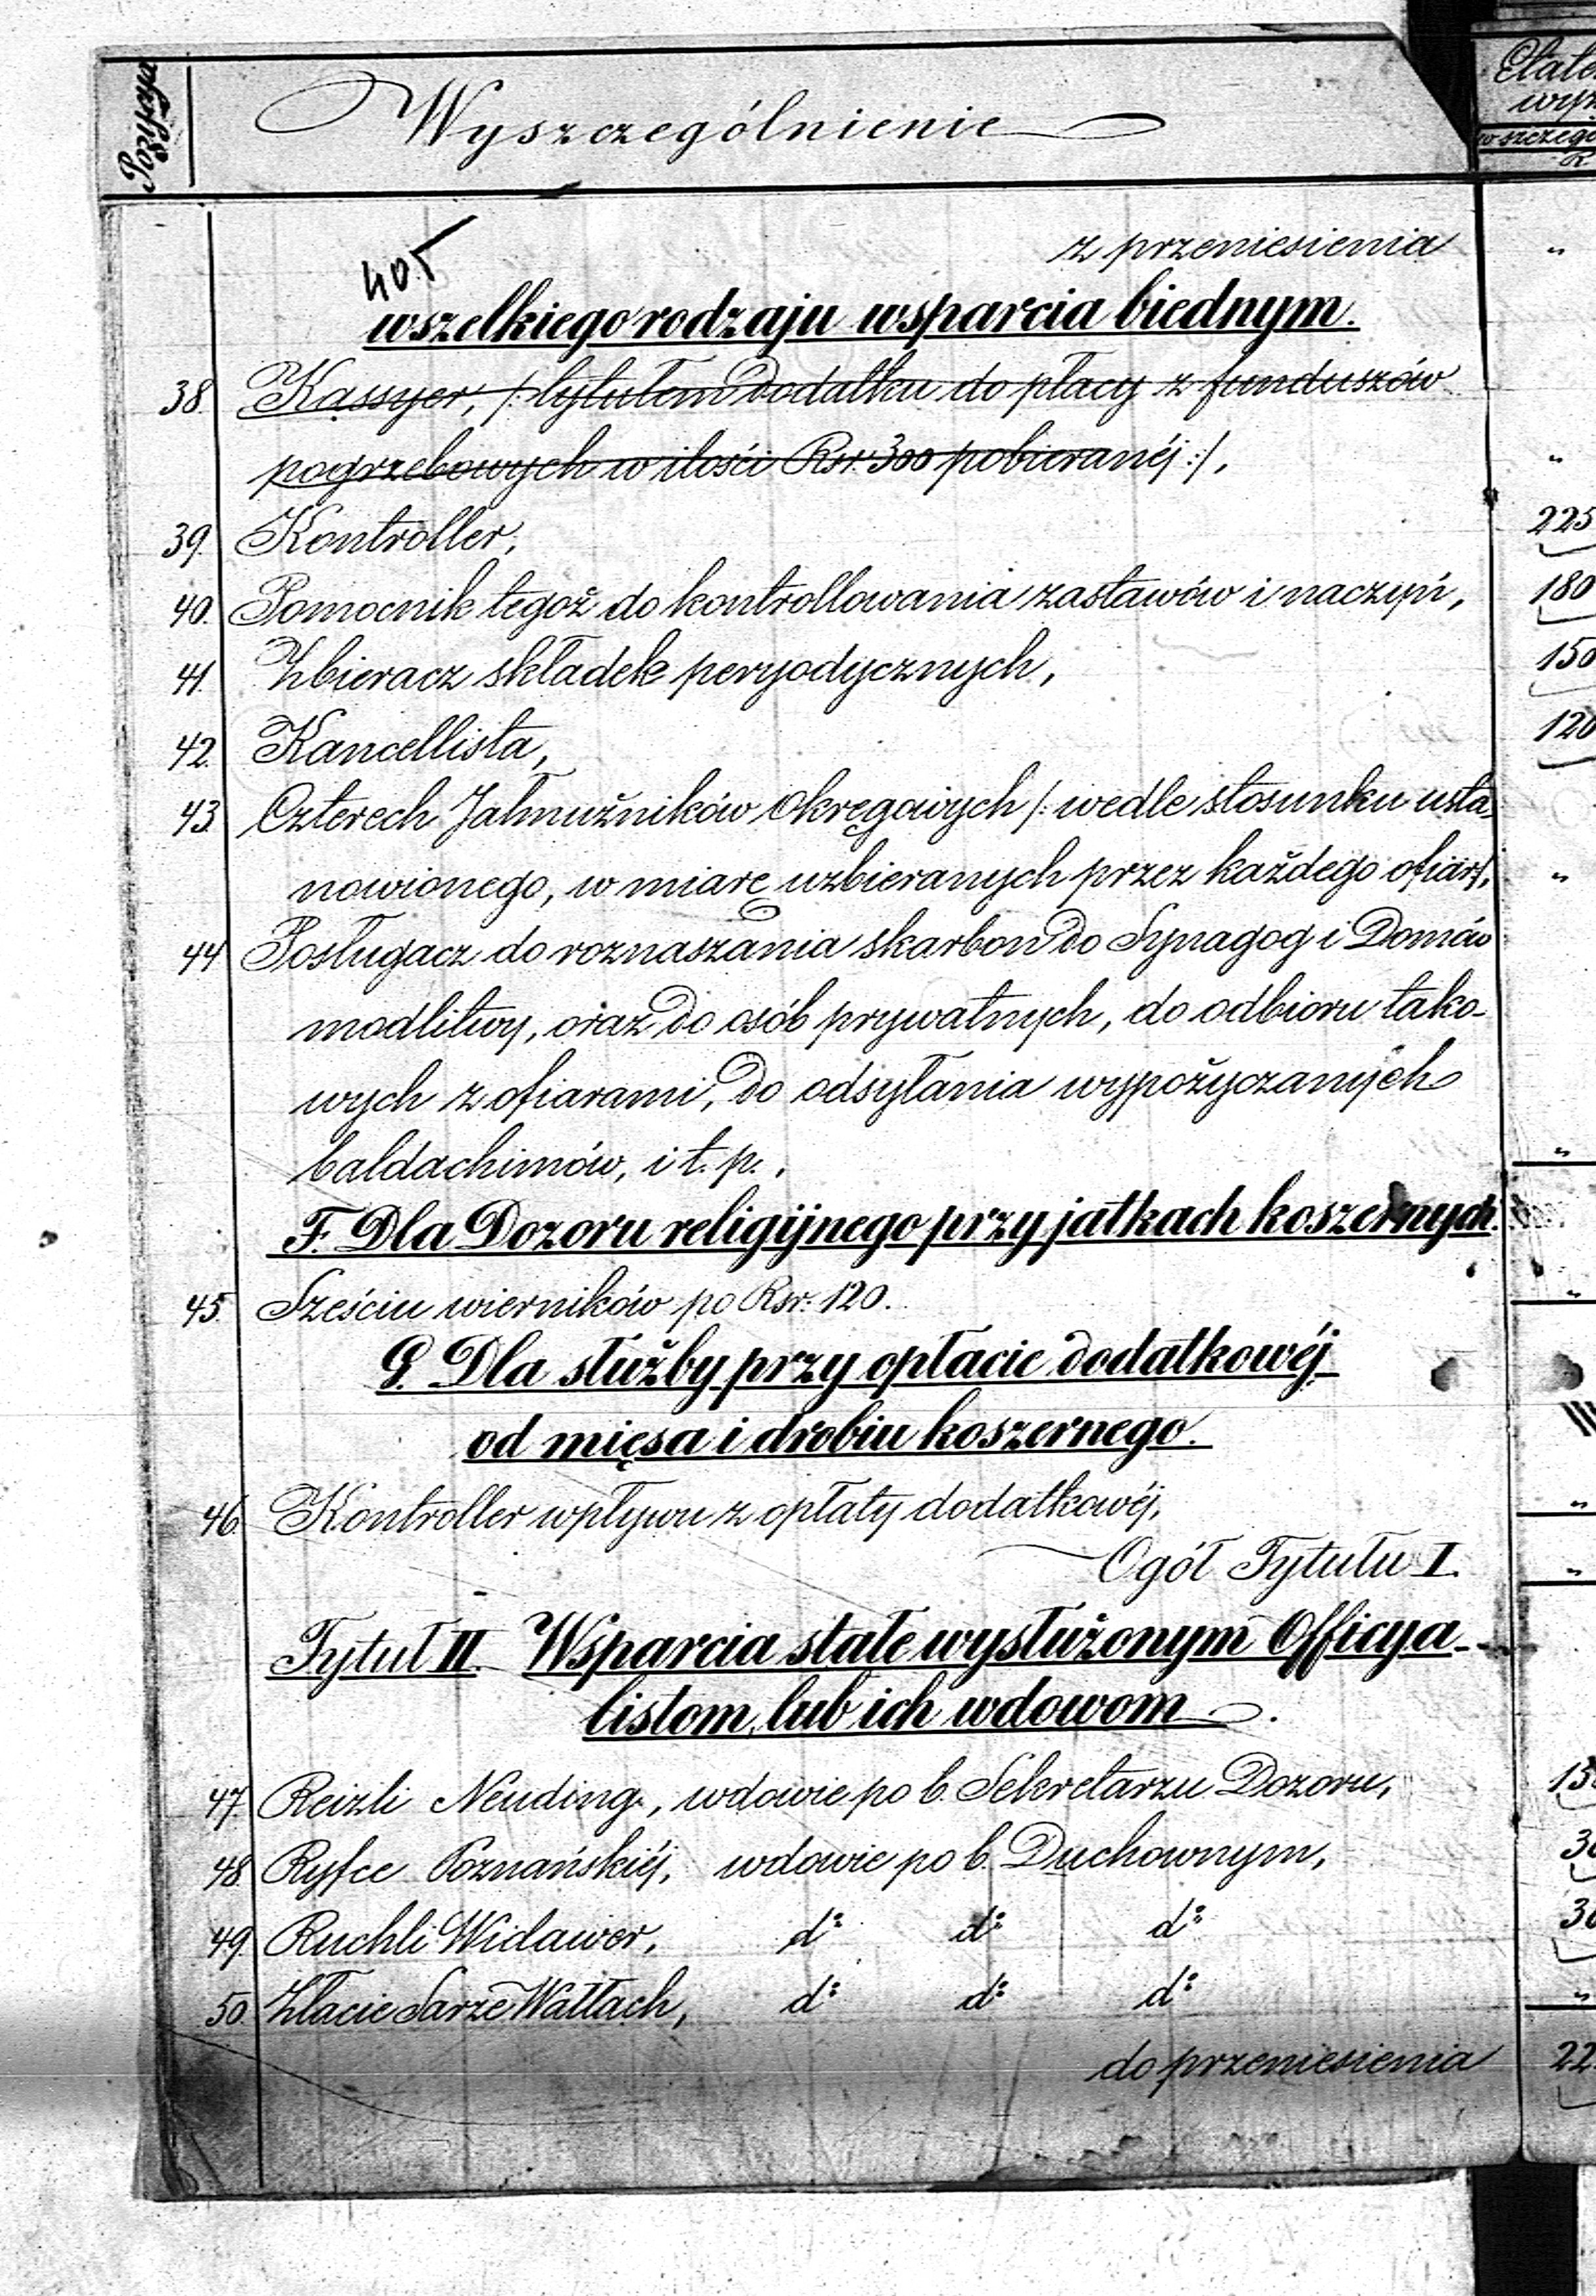 Pozycya
Wyszczególnienie
z przeniesienia
405
wszelkiego rodzaju wsparcia biednym.
38. Kassyer, /: tytułem dodatku do płacy z funduszów
pogrzebowych w ilości Rsr. 300 pobieranéj :/,
39. Kontroller, 225
40. Pomocnik tegoż do kontrollowania zastawów i naczyń, 180
41. Zbieracz składek peryodycznych, 150
42. Kancellista, 120
43. Czterech Jałmużników Okręgowych /: wedle stosunku usta-
nowionego, w miarę uzbieranych przez każdego ofiar :/, "
44 Posługacz do roznaszania skarbon do Synagog i Domów
modlitwy, oraz do osób prywatnych, do odbioru tako-
wych z ofiarami, do odsyłania wypożyczanych
baldachimów, i t. p., "
F. Dla Dozoru religijnego przy jatkach koszernych.
45. Sześciu wierników po Rsr. 120. "
G. Dla służby przy opłacie dodatkowéj
od mięsa i drobiu koszernego.
46. Kontroller wpływu z opłaty dodatkowéj, "
Ogół Tytułu I. "
Tytuł II. Wsparcia stałe wysłużonym Officya-
listom, lub ich wdowom.
47. Reizli Neuding, wdowie po b. Sekretarzu Dozoru,
48 Ryfce Poznańskiéj, wdowie po b. Duchownym,
49. Ruchli Widawer, do do do
50. Złacie Sarze Wałłach, do do do "
do przeniesienia